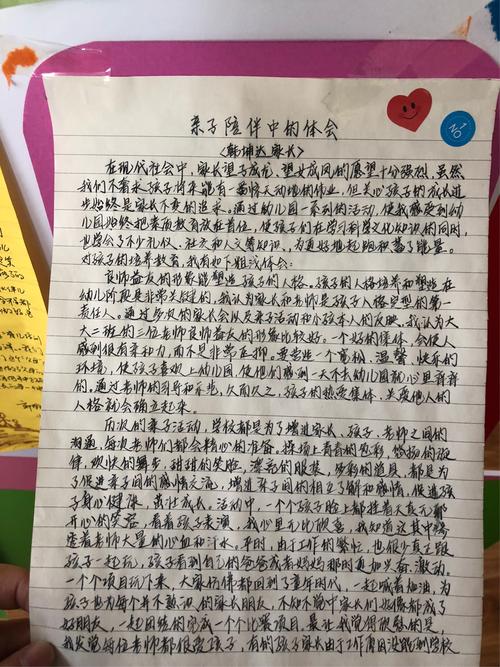 亲子陪伴中的体会
NO1
<韩坤达家长>
在现代社会中，家长望子成龙，望女成凤的愿望十分强烈，虽然
我们不要求孩子将来能有一番惊天动地的伟业，但关心孩子的成长进
步始终是家长不变的追求。通过幼儿园一系列的活动，使我感受到幼
儿园始终把素质教育放在首位，使孩子们在学习科学文化知识的同时，
也学会了不少礼仪、社交和人文等知识，为更好地起跑积蓄了能量。
对孩子的培养教育，我有如下粗浅体会：
良师益友的形象能塑造孩子的人格。孩子的人格培养和塑造在
幼儿阶段是非常关键的，我认为家长和老师是孩子人格定型的第一
责任人。通过多次的家长会以及亲子活动和小孩本人的反映。我认为大
大二班的三位老师良师益友的形象比较好。一个好的集体，会使人
感到很有亲和力，而不是非常压抑。要营造一个宽松、温馨、快乐的
环境，使孩子喜欢上幼儿园，使他们感到一天不去幼儿园就心里痒痒
的。通过老师的引导和互动，久而久之，孩子的热爱集体、关爱他人的
人格就会确立起来。
历次的亲子活动，学校都是为了增进家长、孩子、老师之间的
沟通，每次老师们都会精心的准备。操场上青春的色彩，悠扬的旋
律，欢快的舞步，甜甜的笑脸，漂亮的服装，多彩的道具，都是为
了促进亲子间的感情交流，增进亲子间的相互了解和感情，促进孩
子身心健康，茁壮成长。活动中，一个个孩子脸上都挂着天真无邪
开心的笑容，看着孩子表演，我心里无比欣慰，我知道这其中渗
透着老师大量的心血和汗水。平时，由于工作的繁忙，也很少真正跟
孩子一起玩，孩子看到自己的爸爸或者妈妈那时更加兴奋、激动，
一个个项目玩下来，大家仿佛都回到了童年时代，一起喊着加油，为
孩子也为每个并不熟识的家长朋友，不知不觉中家长们好像都成了
好朋友，一起团结的完成一个个比赛项目。最让我觉得欣慰的是
我发觉每位老师都很爱孩子，有的孩子家长由于工作原因没能到学校